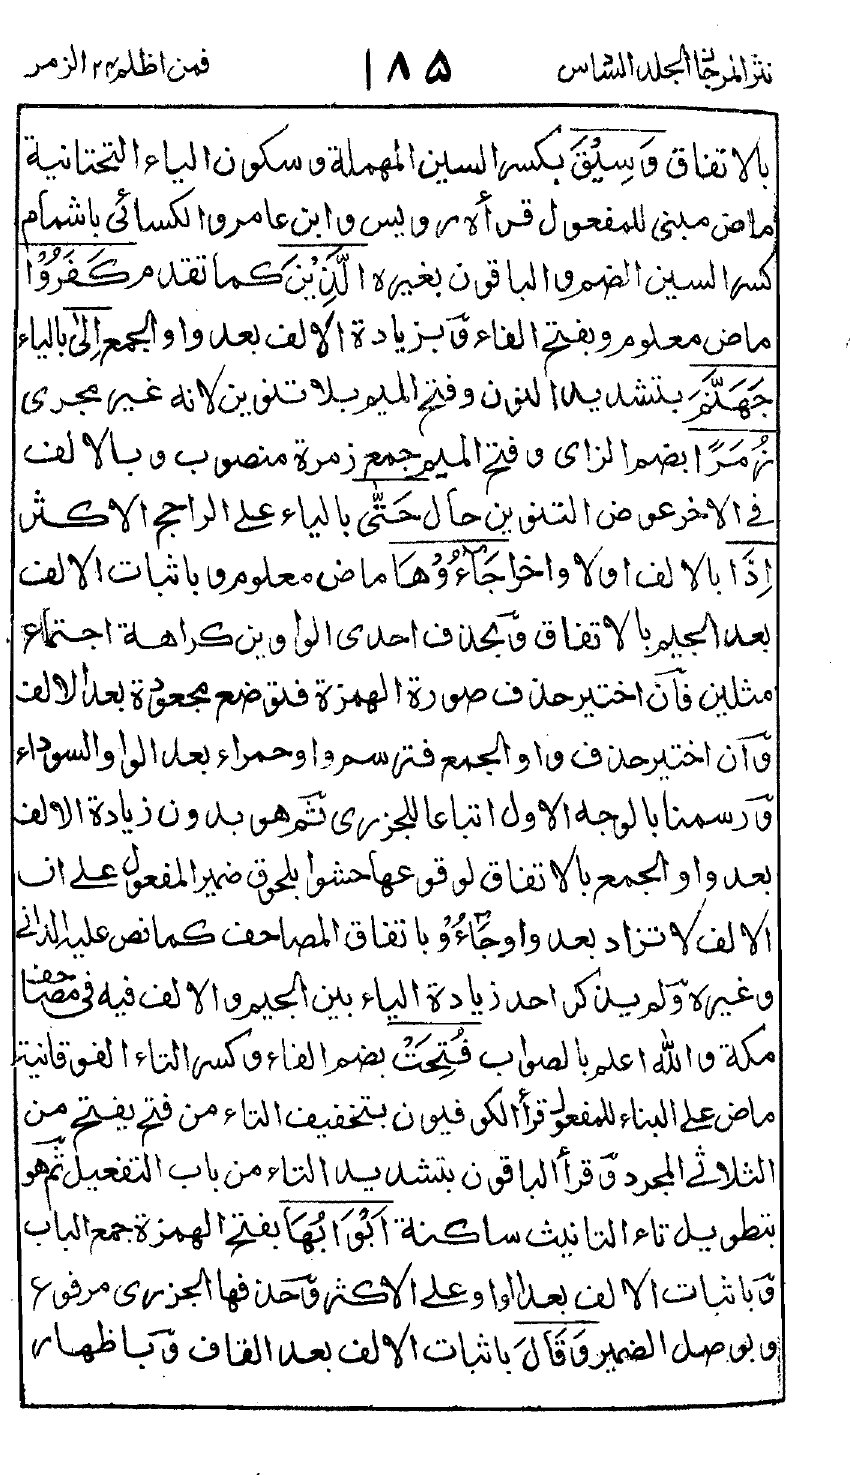 نثر المرجان الجلد السادس ١٨٥ فمن اظلم ٢٤ الزمر
بالاتفاق وَسِيْقَ بكسر السين المهملة وسكون الياء التحتانية
ماض مبني للمفعول قرأه رويس وابن عامر والكسائي باشمام
كسر السين الضم والباقون بغيره الَّذِيْنَ كما تقدم كَفَرُوْا
ماض معلوم وبفتح الفاء وٓبزيادة الالف بعد واو الجمع اِلٰى بالياء
جَهَنَّمَ بتشديد النون وفتح الميم بلا تنوين لانه غير مجرى
زُمَرًا بضم الزاى وفتح الميم جمع زمرة منصوب وبالالف
في الاخر عوض التنوين حال حَتّٰى بالياء على الراجح الاكثر
اِذَا بالالف اولا واخرا جَآءُوْهَا ماض معلوم وباثبات الالف
بعد الجيم بالاتفاق وٓبحذف احدى الواوين كراهة اجتماع
مثلين فآن اختير حذف صورة الهمزة فتوضع مجعودة بعد الالف
وٓان اختير حذف واو الجمع فترسم واو حمراء بعد الواو السوداء
وٓرسمنا بالوجه الاول اتباعا للجزرى ثم هو بدون زيادة الالف
بعد واو الجمع بالاتفاق لوقوعها حشوا بلحوق ضمير المفعول على ان
الالف لا تزاد بعد واو جَآءُوْ باتفاق المصاحف كما نص عليه الداني
وغيره وٓلم يذكر احد زيادة الياء بين الجيم والالف فيه في مصاحف
مكة والله اعلم بالصواب فُتِحَتْ بضم الفاء وكسر التاء الفوقانية
ماض على البناء للمفعول قرأ الكوفيون بتخفيف التاء من فتح يفتح من
الثلاثي المجرد وٓقرأ الباقون بتشديد التاء من باب التفعيل ثم هو
بتطويل تاء التانيث ساكنة اَبْوَابُهَا بفتح الهمزة جمع الباب
وٓباثبات الالف بعد الواو على الاكثر وٓحذفها الجزرى مرفوع
وبوصل الضمير وَقَالَ باثبات الالف بعد القاف وٓباظهار